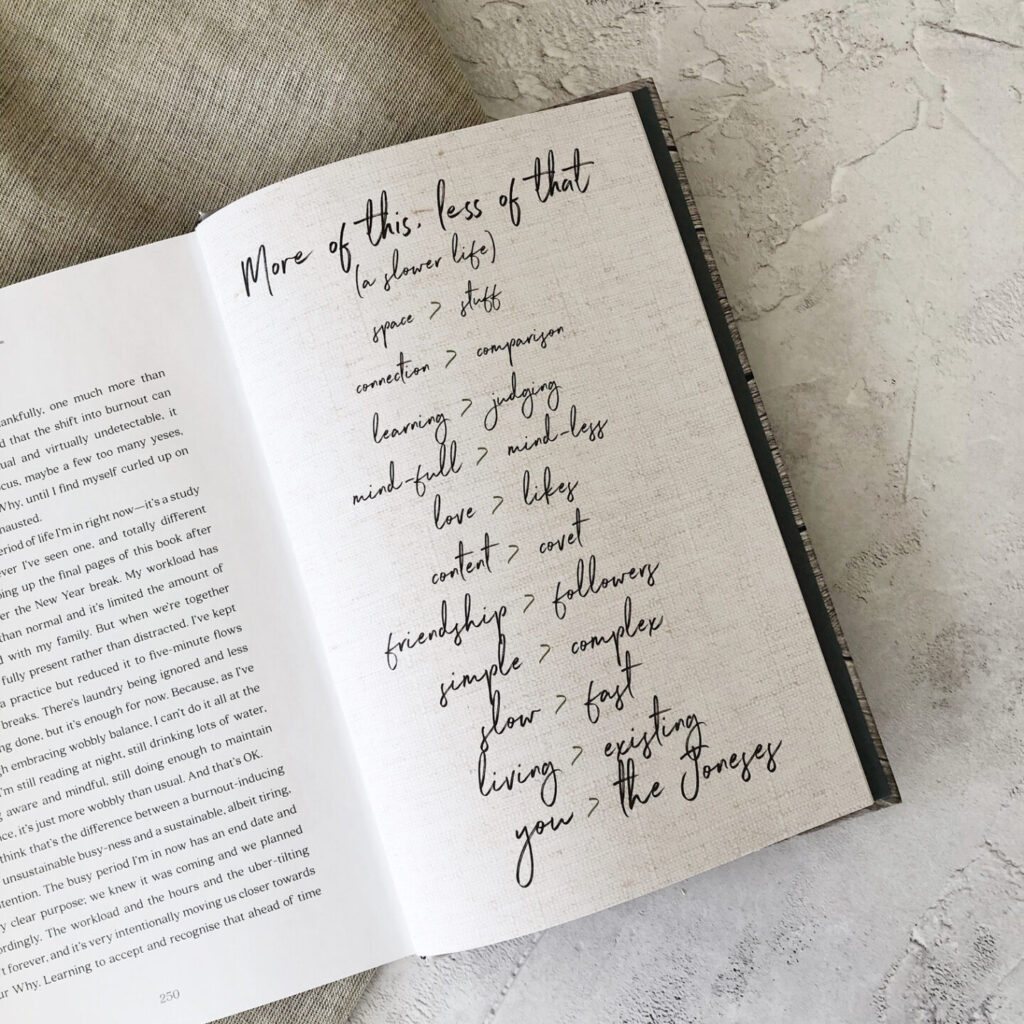 ankfully, one much more than
d that the shift into burnout can
ual and virtually undetectable, it
cus, maybe a few too many yeses,
Why, until I find myself curled up on
hausted.
eriod of life I'm in right now—it's a study
ever I've seen one, and totally different
ping up the final pages of this book after
er the New Year break. My workload has
than normal and it's limited the amount of
d with my family. But when we're together
fully present rather than distracted. I've kept
a practice but reduced it to five-minute flows
breaks. There's laundry being ignored and less
ng done, but it's enough for now. Because, as I've
gh embracing wobbly balance, I can't do it all at the
I'm still reading at night, still drinking lots of water,
g aware and mindful, still doing enough to maintain
nce, it's just more wobbly than usual. And that's OK.
think that's the difference between a burnout-inducing
unsustainable busy-ness and a sustainable, albeit tiring,
tention. The busy period I'm in now has an end date and
y clear purpose; we knew it was coming and we planned
ordingly. The workload and the hours and the uber-tilting
t forever, and it's very intentionally moving us closer towards
ur Why. Learning to accept and recognise that ahead of time
250
More of this, less of that
(a slower life)
space > stuff
connection > comparison
learning > judging
mind-full > mind-less
love > likes
content > covet
friendship > followers
simple > complex
slow > fast
living > existing
you > the Joneses